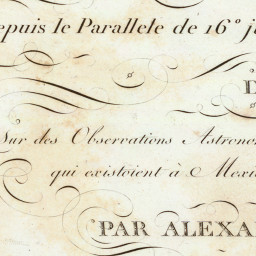 epuis le Parallele de 16° j
D
Sur des Observations Astrono
qui existoient à Mexi
PAR ALEXA